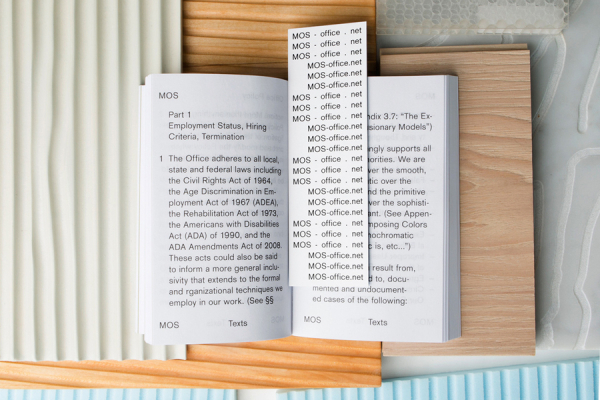 MOS
Part 1
Employment Status, Hiring
Criteria, Termination
1 The Office adheres to all local,
state and federal laws including
the Civil Rights Act of 1964,
the Age Discrimination in Em-
ployment Act of 1967 (ADEA),
the Rehabilitation Act of 1973,
the Americans with Disabilities
Act (ADA) of 1990, and the
ADA Amendments Act of 2008.
These acts could also be said
to inform a more general inclu-
sivity that extends to the formal
and rganizational techniques we
employ in our work. (See §§
MOS Texts
MOS - office . net
MOS - office . net
MOS - office . net
MOS-office.net
MOS-office.net
MOS-office.net
MOS - office . net
MOS - office . net
MOS - office . net
MOS-office.net
MOS-office.net
MOS-office.net
MOS - office . net
MOS - office . net
MOS - office . net
MOS-office.net
MOS-office.net
MOS-office.net
MOS - office . net
MOS - office . net
MOS - office . net
MOS-office.net
MOS-office.net
MOS-office.net
3.7: “The Ex-
Models”)
supports all
We are
over the smooth,
over the
and the primitive
over the sophisti-
(See Appen-
Colors
is, etc...”)
result from,
to, docu-
mented and undocument-
ed cases of the following:
MOS Texts